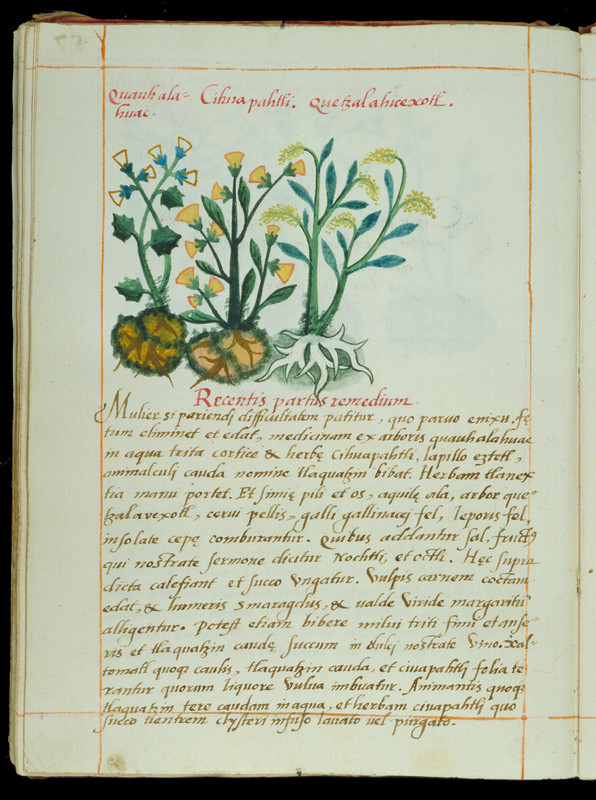 Quauhala= Cihuapahtli. Quetzalahuexotl.
huac.
Recentis partus remedium.
Mulier si pariendi difficultatem patitur, quo paruo enixu fę
tum eliminet et edat, medicinam ex arboris quauhalahuac
in aqua trita cortice & herbę Cihuapahtli, lapillo eztetl,
animalculi cauda nomine tlaquatzin bibat. Herbam tlanex
tia manu portet. Et simię pili et os, aquilę ala, arbor que=
tzalavexotl, cerui pellis, galli gallinacej fel, leporis fel,
insolate cepę comburantur. Quibus addantur sal, fruct9
qui nostrate sermone dicitur Nochtli, et octli. Hęc supra
dicta calefiant et succo Vngatur. Vulpis carnem coctam
edat, & humeris smaragdus, & ualde viride margaritū
alligentur. Potest etiam bibere milui triti fimi et anse=
ris et tlaquatzin caudę succum in dulcj nostrate Vino. Xal=
tomatl quoqȝ caulis, tlaquatzin cauda, et ciuapahtlj folia te
rantur quorum liquore vulua imbuatur. Animantis quoqȝ
tlaquatzin tere caudam in aqua, et herbam ciuapahtlj quo
succo uentrem clysteri infuso lauato vel purgato.